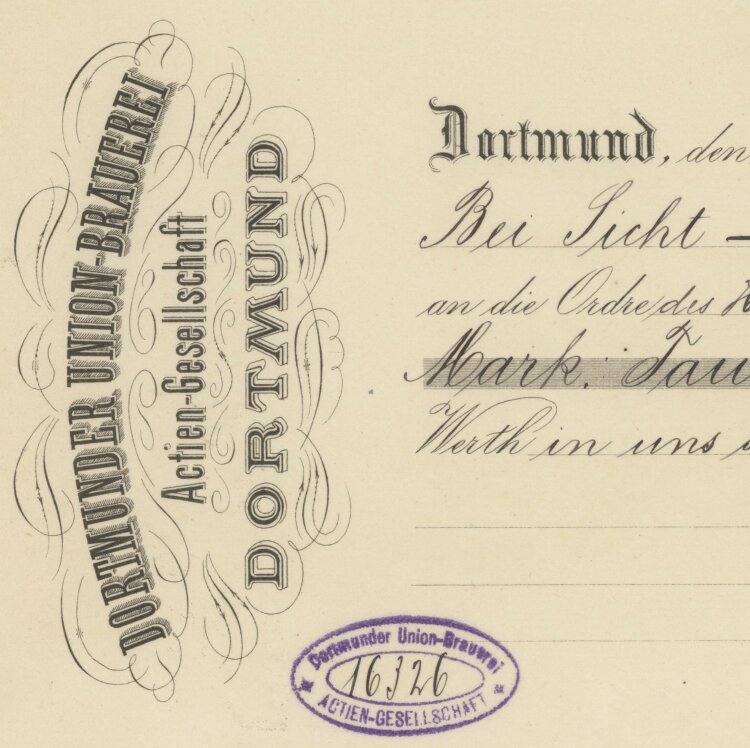 DORTMUNDER UNION-BRAUEREI
Actien-Gesellschaft
DORTMUND
Dortmund, den
Bei Sicht —
an die Ordre des
Mark: Tau
Werth in uns
Dortmunder Union-Brauerei
16326
ACTIEN-GESELLSCHAFT